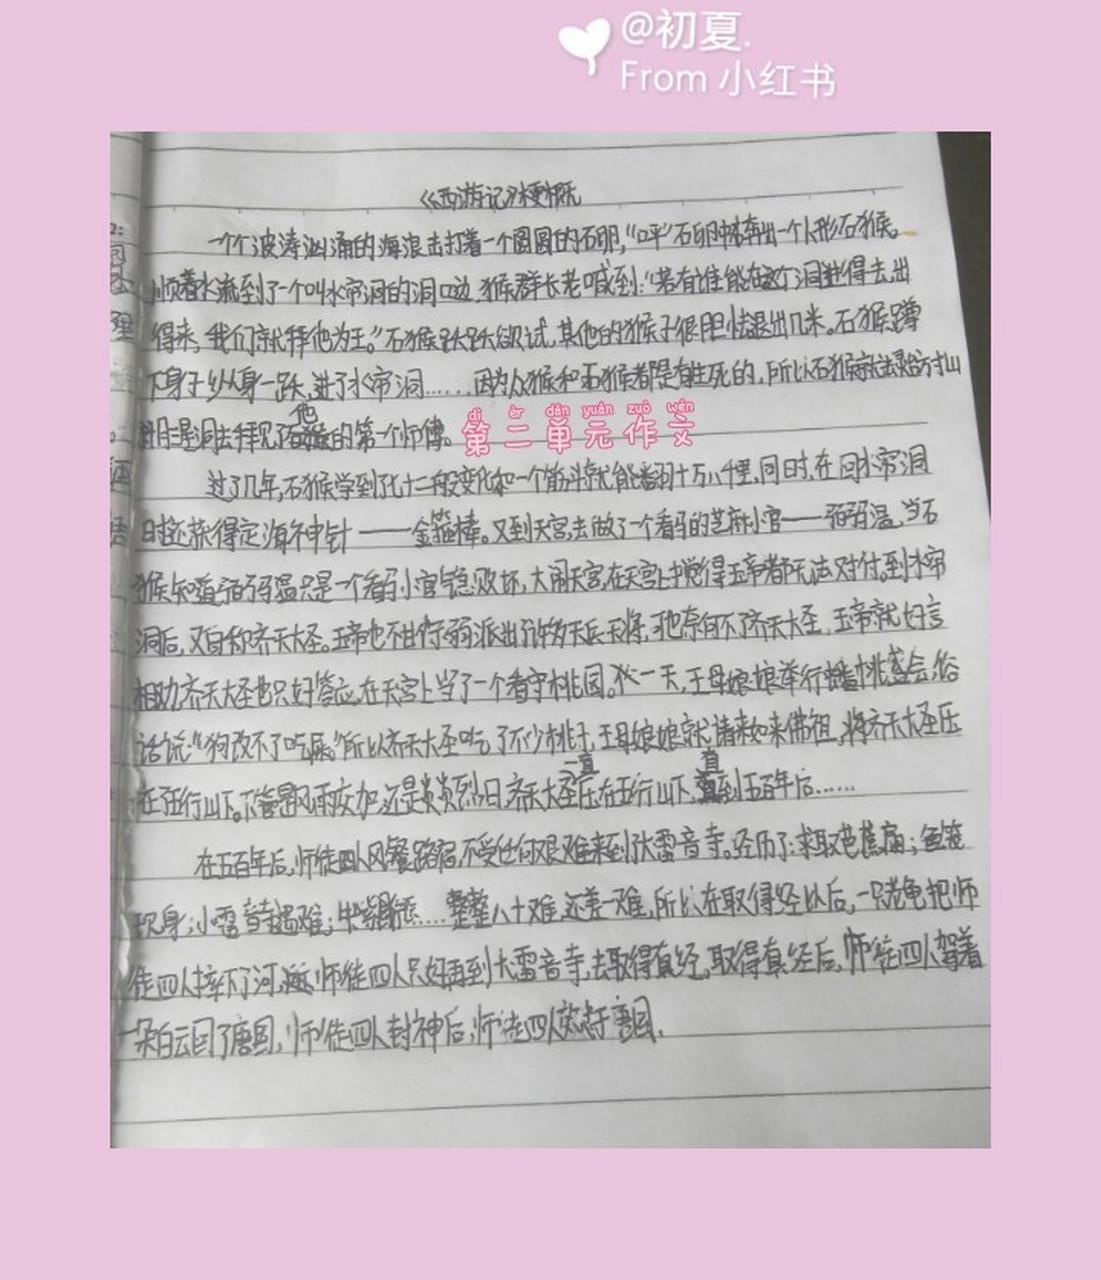 @初夏.
From 小红书
《西游记》梗概
一个个波涛汹涌的海浪击打着一个圆圆的石卵，“呯”石卵中蹦出一个人形石猴。
顺着水流到了一个叫水帘洞的洞口边，猴群长老喊到：“若有谁能在这个洞进得去，出
得来，我们就拜他为王。”石猴跃跃欲试，其他的猴子很胆怯退出几米。石猴蹲
下身子纵身一跃，进了水帘洞……因为众猴和石猴都是有生死的，所以石猴就去灵台方寸山
斜月三星洞去拜见了他的第一个师傅。
dì èr dān yuán zuò wén
第二单元作文
过了几年，石猴学到了七十二般变化和一个筋斗就能翻十万八千里，同时，在回水帘洞
时还获得定海神针——金箍棒。又到天宫去做了一个看马的芝麻小官——弼马温，当石
猴知道弼马温只是一个看马小官气急败坏，大闹天宫，在天宫上才觉得玉帝都无法对付，到水帘
洞后，又自称齐天大圣。玉帝也不甘示弱派出许多天兵天将，可也奈何不了齐天大圣，玉帝就好言
相劝，齐天大圣也只好答应，在天宫上当了一个看守桃园。一天，王母娘娘举行蟠桃盛会，俗
话说：“狗改不了吃屎。”所以齐天大圣吃了不少桃子，王母娘娘就请来如来佛祖，将齐天大圣压
在五行山下。不管是风雨交加，还是炎炎烈日，齐天大圣一直压在五行山下，直到五百年后……
在五百年后，师徒四人风餐露宿，不受任何艰难来到大雷音寺。经历了：求取芭蕉扇；鱼篮
现身；小雷音寺遇难；……整整八十难，还差一难，所以在取得经以后，一只老龟把师
徒四人摔下了河，师徒四人只好再到大雷音寺，去取得真经，取得真经后，师徒四人驾着
一朵白云回了唐国，师徒四人封神后，师徒四人效忠于唐国.